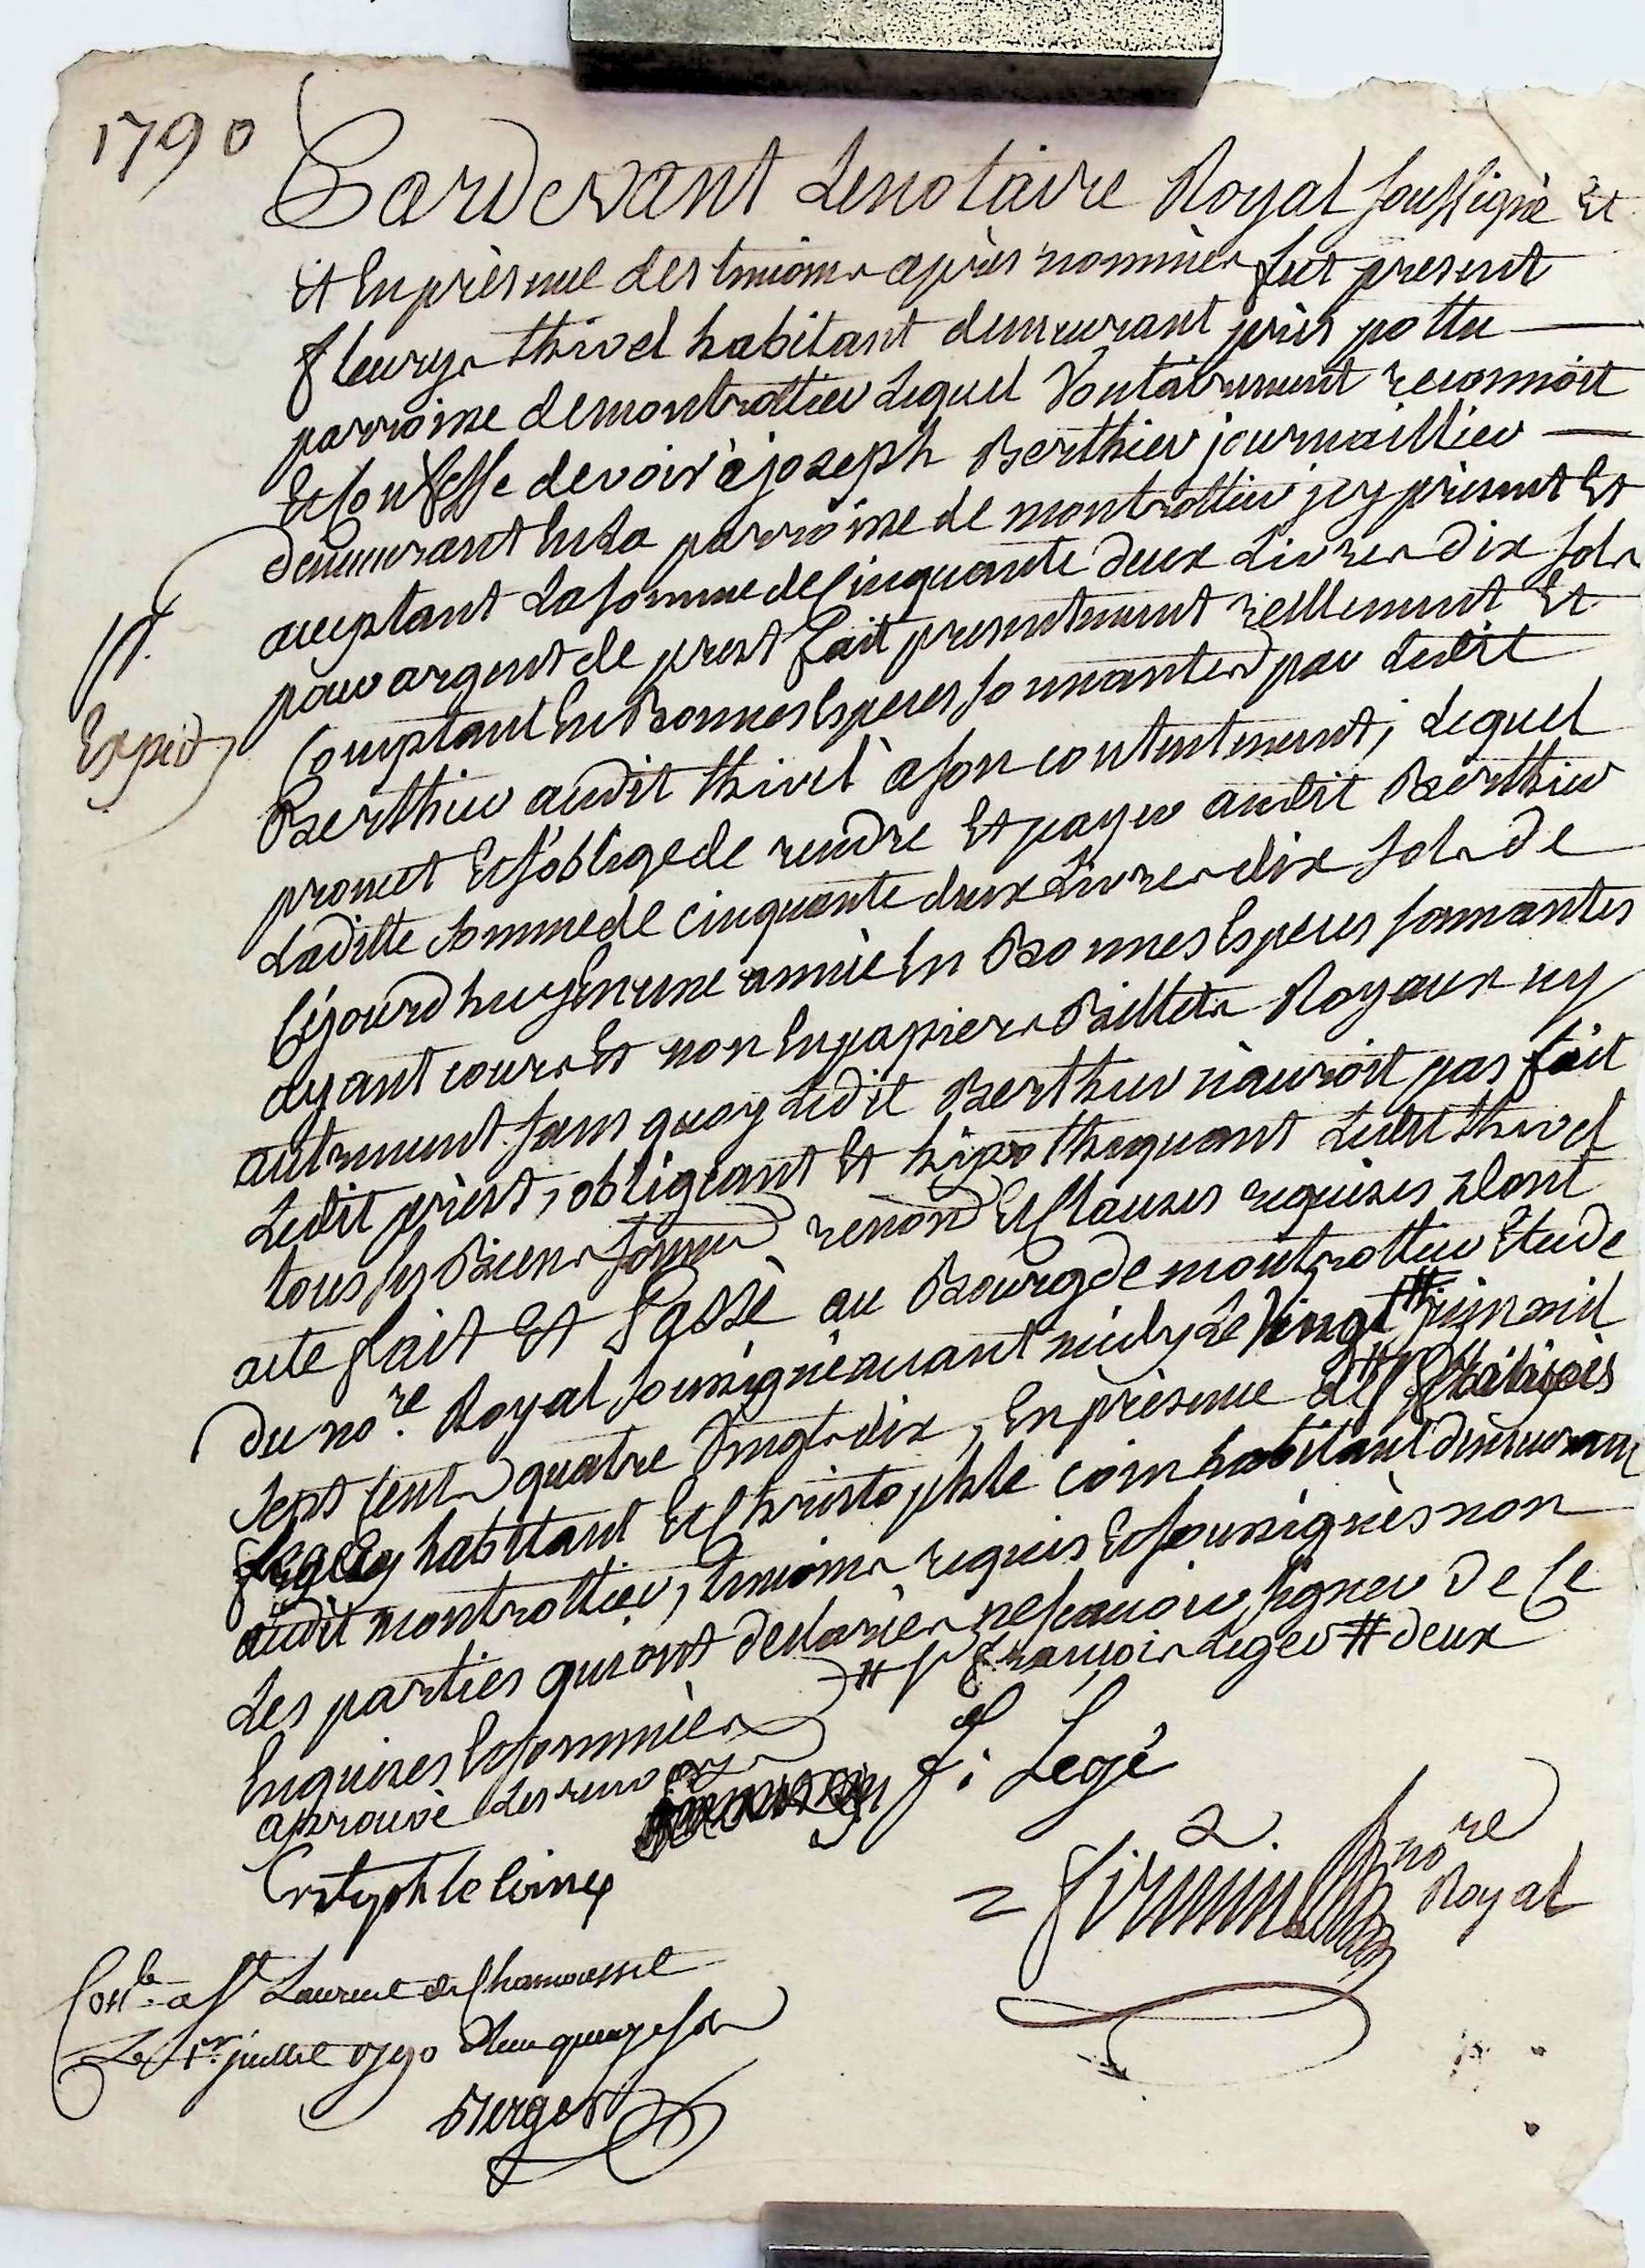 1790
Pardevant Lenotaire Royal soussigné Et
Et En présence des temoins après nommés fut present
fleury thivel habitant demeurant près pottu
parroisse demontrottier Lequel Vontairement reconnoit
Et Confesse devoir à joseph Berthier journaillier
demeurant En la parroisse de montrottier jcy présent Et
aceptant La somme de Cinquante deux Livres dix sols
pour argent de prest fait presentement reellement Et
Comptant En Bonnes Especes sonnantes par Ledit
Expéd
Berthier audit thivel à son contentement, Lequel
promet Et s'oblige de rendre Et payer audit Berthier
Laditte somme de cinquante deux Livres dix sols de
Cejourd'huy En une année En Bonnes Especes sonnantes
ayant cours Et non En papiers Billets Royaux ny
autrement sans quoy Ledit Berthier n'auroit pas fait
Ledit prèst, obligeant Et hipothequant Ledit thivel
tous ses Biens soumd renond Et Clauses requises dont
acte fait Et Passé au Bourg de montrottier Etude
du no.re Royal soussigné avant midy Le Vingt # juin mil
sept Cents quatre Vingt dix, En présence de
habitant Et Christophle coin habitant demeurant
audit montrottier, temoins requis Et soussignés non
Les parties qui ont declarés ne sçavoir signer de Ce
Enquises Et sommées # françois Leger # deux
aprouvé Les renvoys
f. Legé
Cristophle Coin
firmin no.re Royal
Contlé a St Laurent de Chamousset
Le 1er juillet 1790 Reçu quinze sols